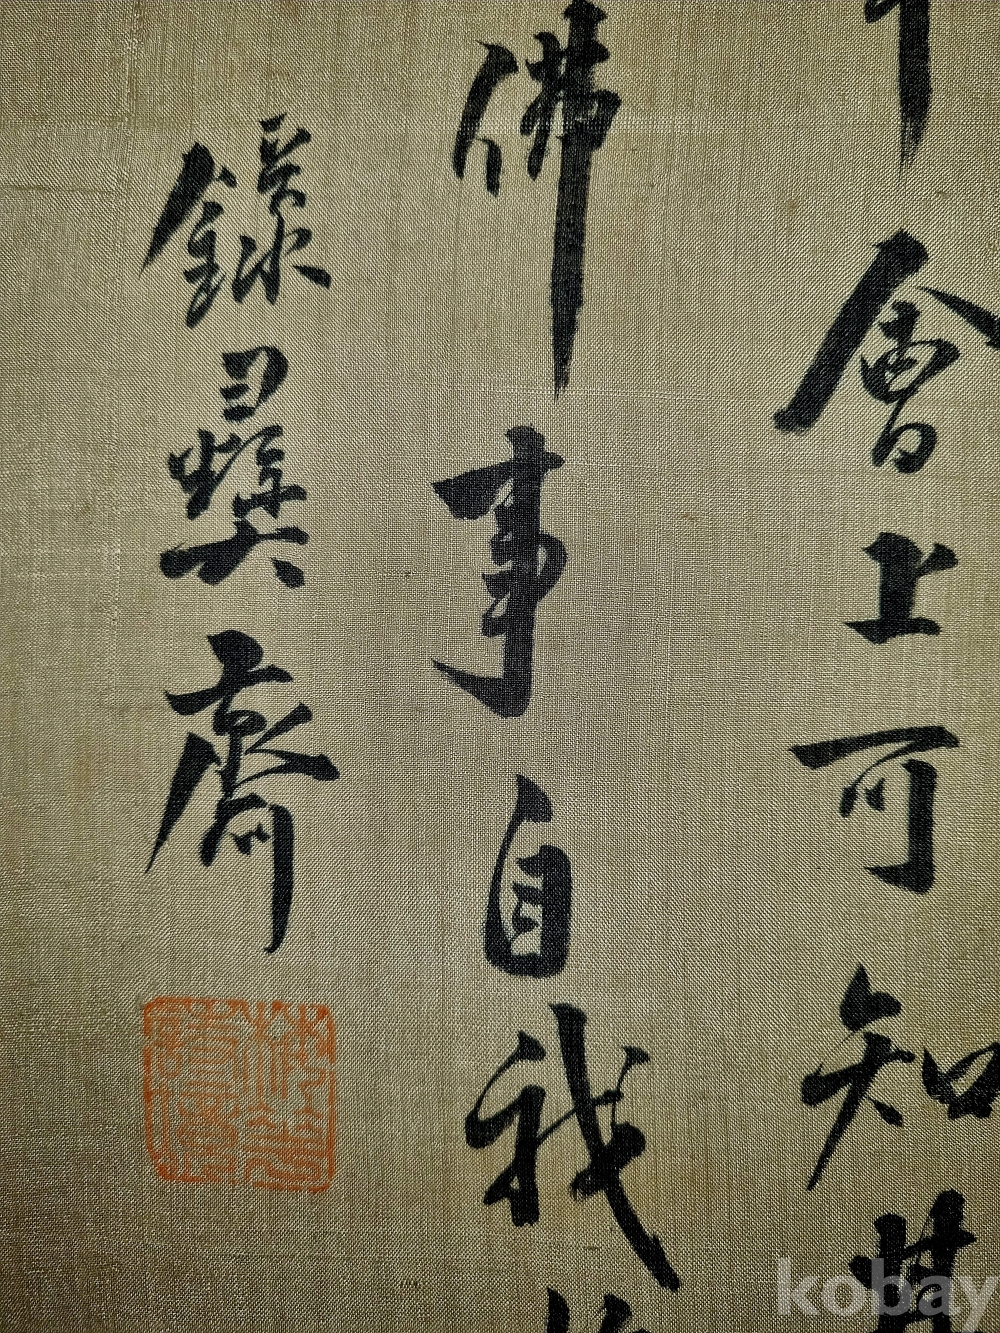 會上可知其
佛事自我
錄彛齋
kobay